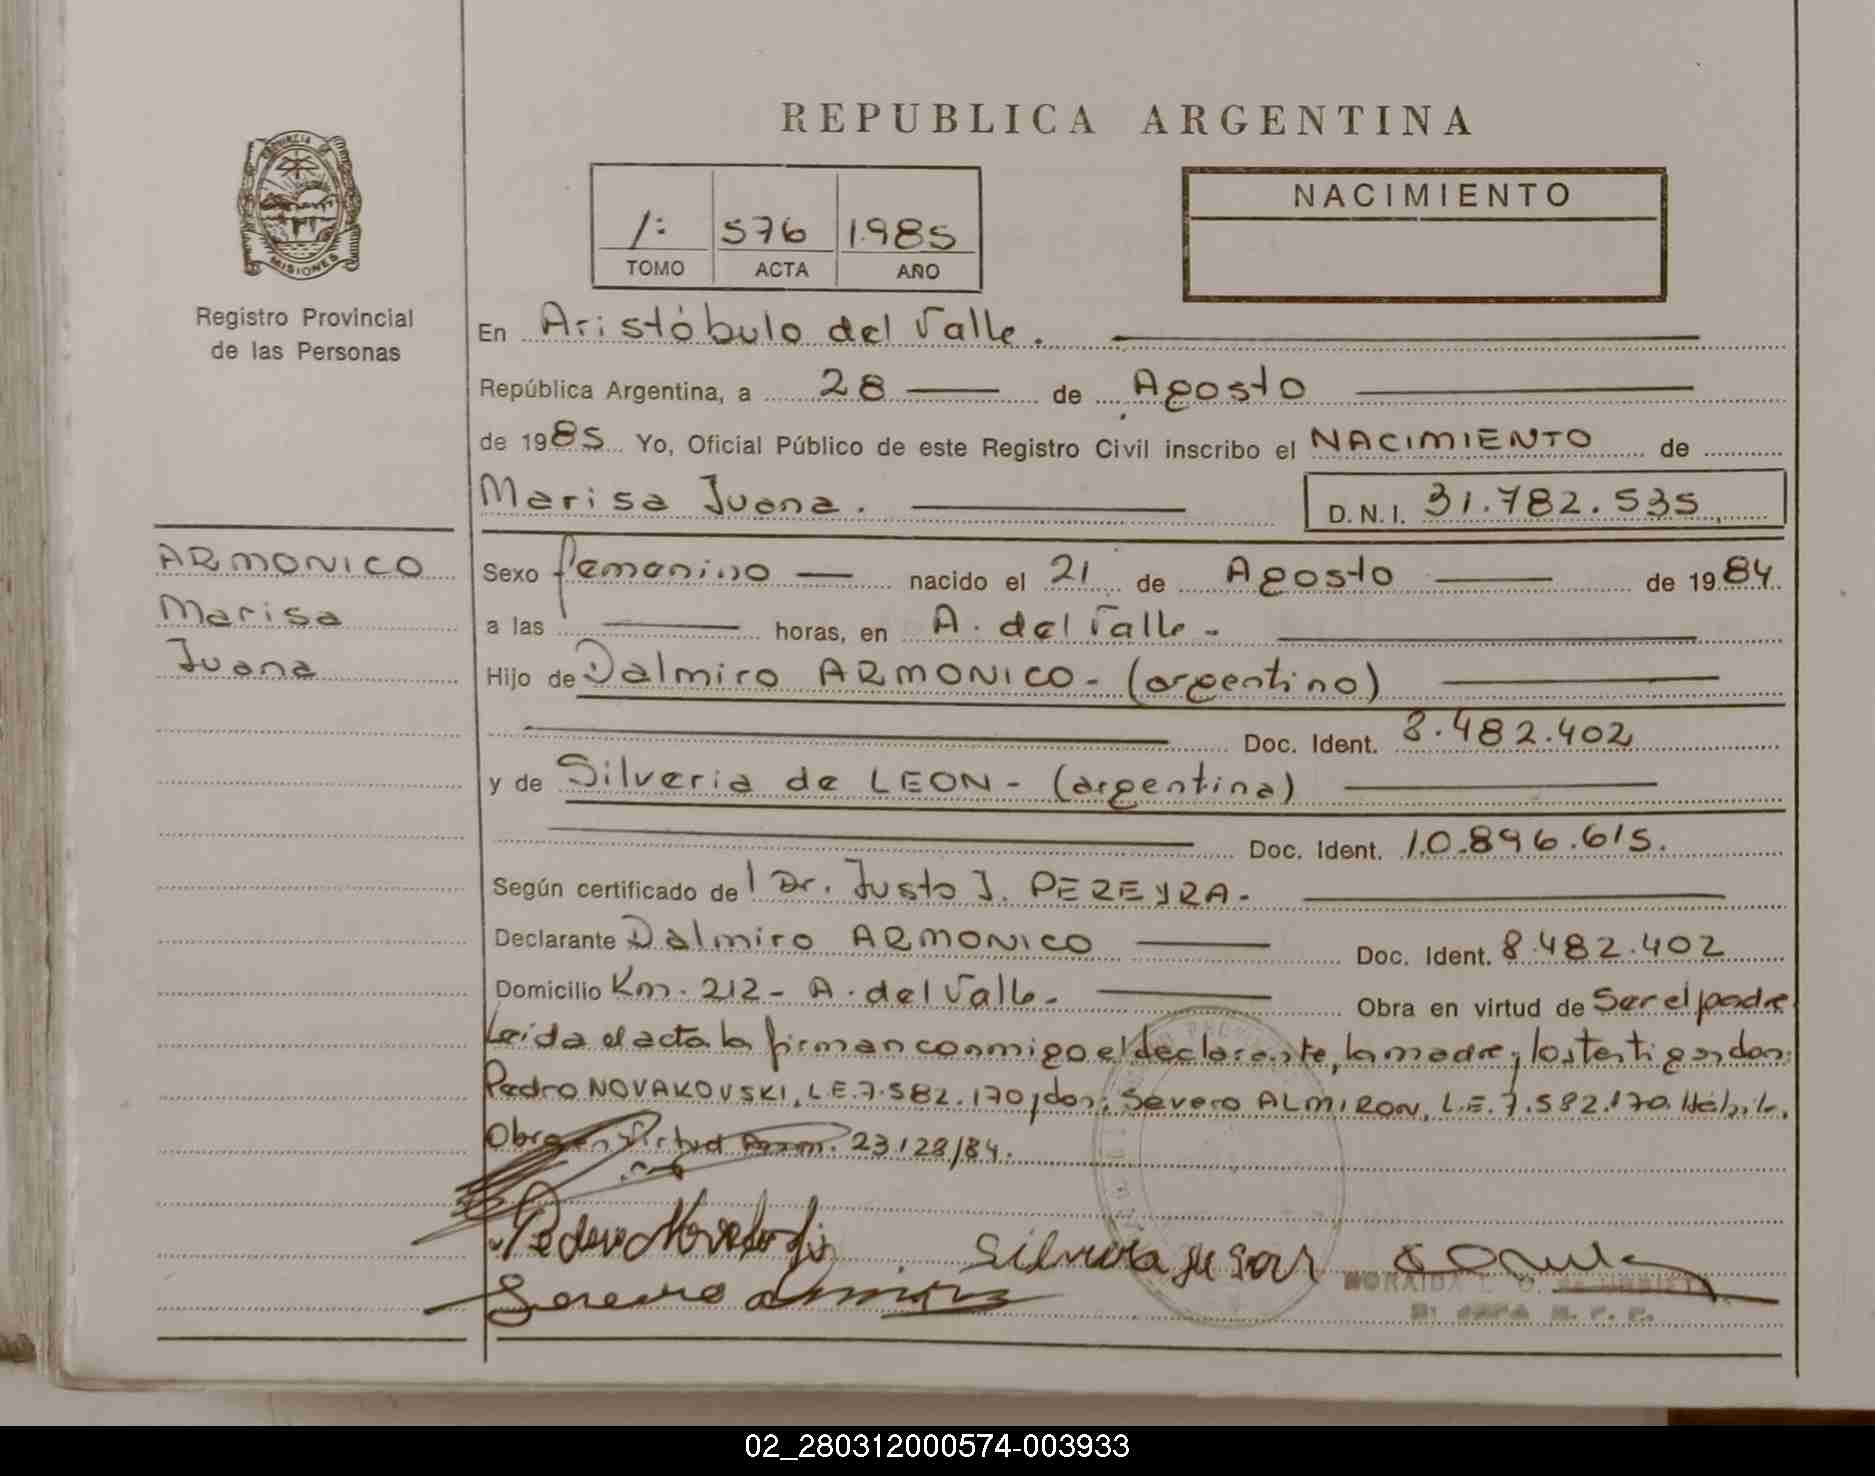 REPUBLICA ARGENTINA
PROVINCIA DE
MISIONES
Registro Provincial
de las Personas
1: 576 1985
TOMO ACTA AÑO
NACIMIENTO
En Aristóbulo del Valle.
República Argentina, a 28 de Agosto
de 1985 Yo, Oficial Público de este Registro Civil inscribo el NACIMIENTO de
Marisa Juana. D.N.I. 31.782.535
ARMONICO
Marisa
Juana
Sexo femenino nacido el 21 de Agosto de 1984
a las horas, en A. del Valle -
Hijo de Dalmiro ARMONICO - (argentino)
Doc. Ident. 8.482.402
y de Silveria de LEON - (argentina)
Doc. Ident. 10.896.615.
Según certificado de Dr. Justo J. PEREYRA -
Declarante Dalmiro ARMONICO Doc. Ident. 8.482.402
Domicilio Km. 212 - A. del Valle - Obra en virtud de Ser el padre
Leida el acta la firman conmigo el declarante, la madre y los testigos don:
Pedro NOVAKOVSKI, L.E. 7.582.170 y don: Severo ALMIRON, L.E. 7.582.170
Obra en Virtud 23.128/84.
Pedro
Silveria de
02_280312000574-003933